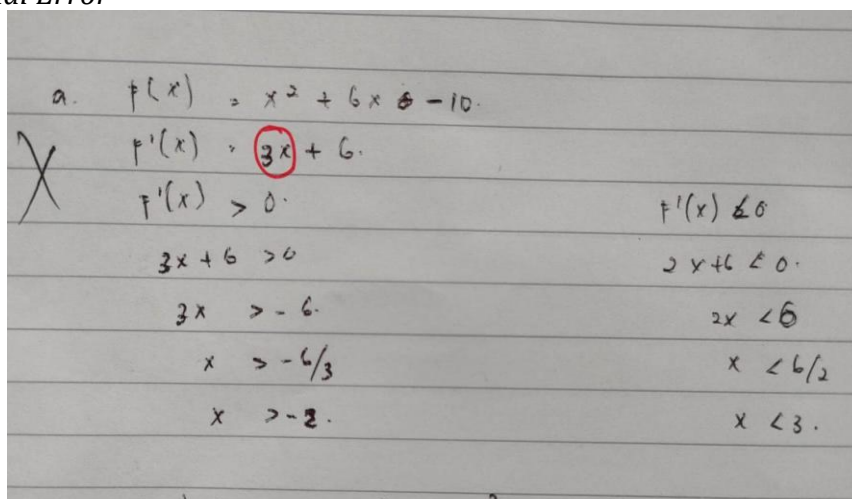 Error
a. f(x) = x² + 6x - 10.
f'(x) = 3x + 6.
f'(x) > 0.
3x + 6 > 0
3x > - 6.
x > -6/3
x > -2.
f'(x) < 0
2x + 6 < 0.
2x < 6
x < 6/2
x < 3.